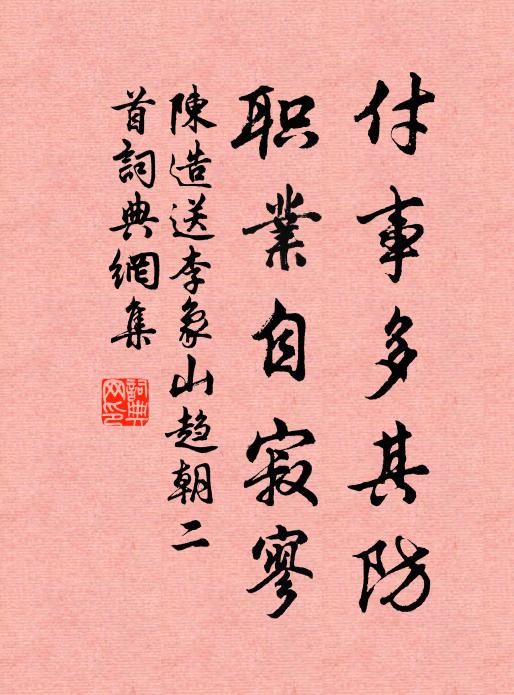 付事多其防
职業自寂寥
陳造送李象山趋朝二
首詞典網集
詞典网印